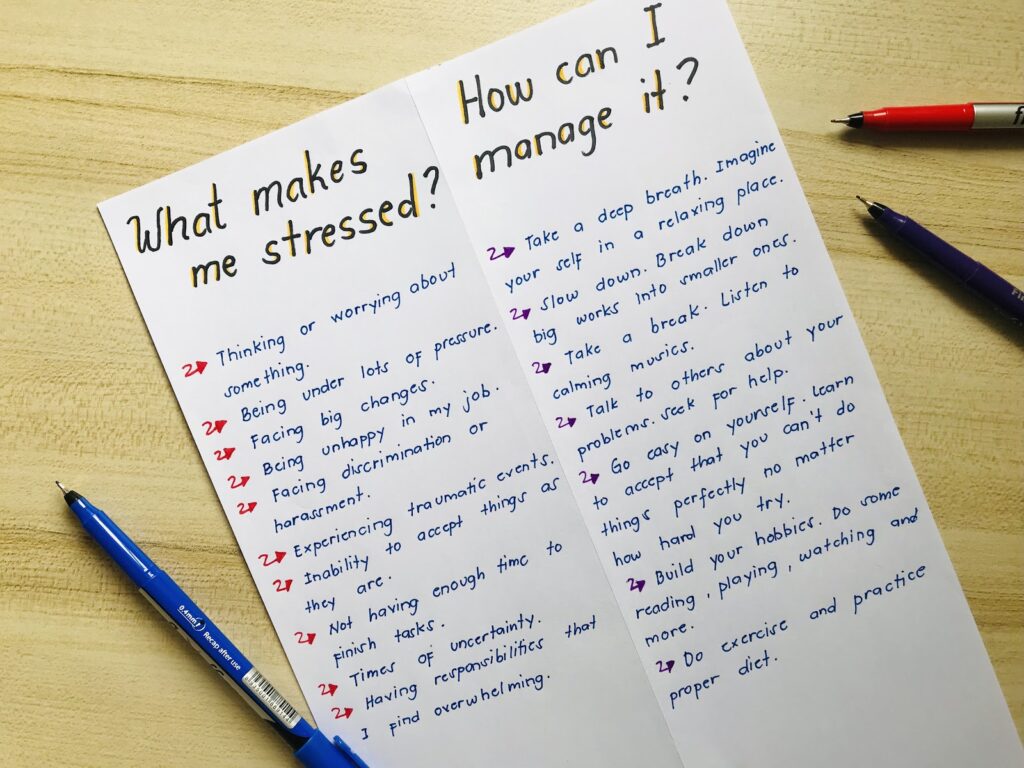 What makes
me stressed?
Thinking or worrying about
something.
Being under lots of pressure.
Facing big changes.
Being unhappy in my job.
Facing discrimination or
harassment.
Experiencing traumatic events.
Inability to accept things as
they are.
Not having enough time to
finish tasks.
Times of uncertainty.
Having responsibilities that
I find overwhelming.
How can I
manage it?
Take a deep breath. Imagine
your self in a relaxing place.
Slow down. Break down
big works into smaller ones.
Take a break. Listen to
calming musics.
Talk to others about your
problems. Seek for help.
Go easy on yourself. Learn
to accept that you can't do
things perfectly no matter
how hard you try.
Build your hobbies. Do some
reading, playing, watching and
more.
Do exercise and practice
proper diet.
0.4mm
Recap after use